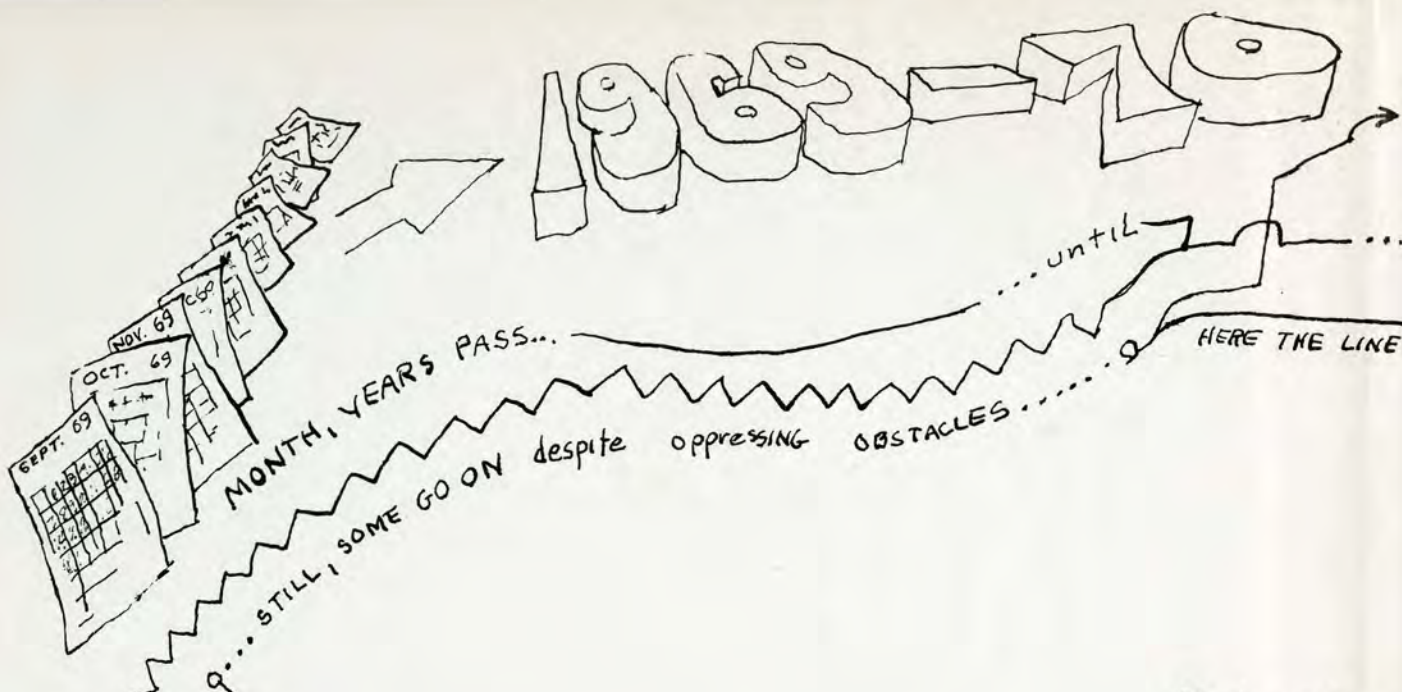 1969-70
SEPT. 69
OCT. 69
NOV. 69
MONTH, YEARS PASS... ...until
STILL, SOME GO ON despite oppressing OBSTACLES......
HERE THE LINE